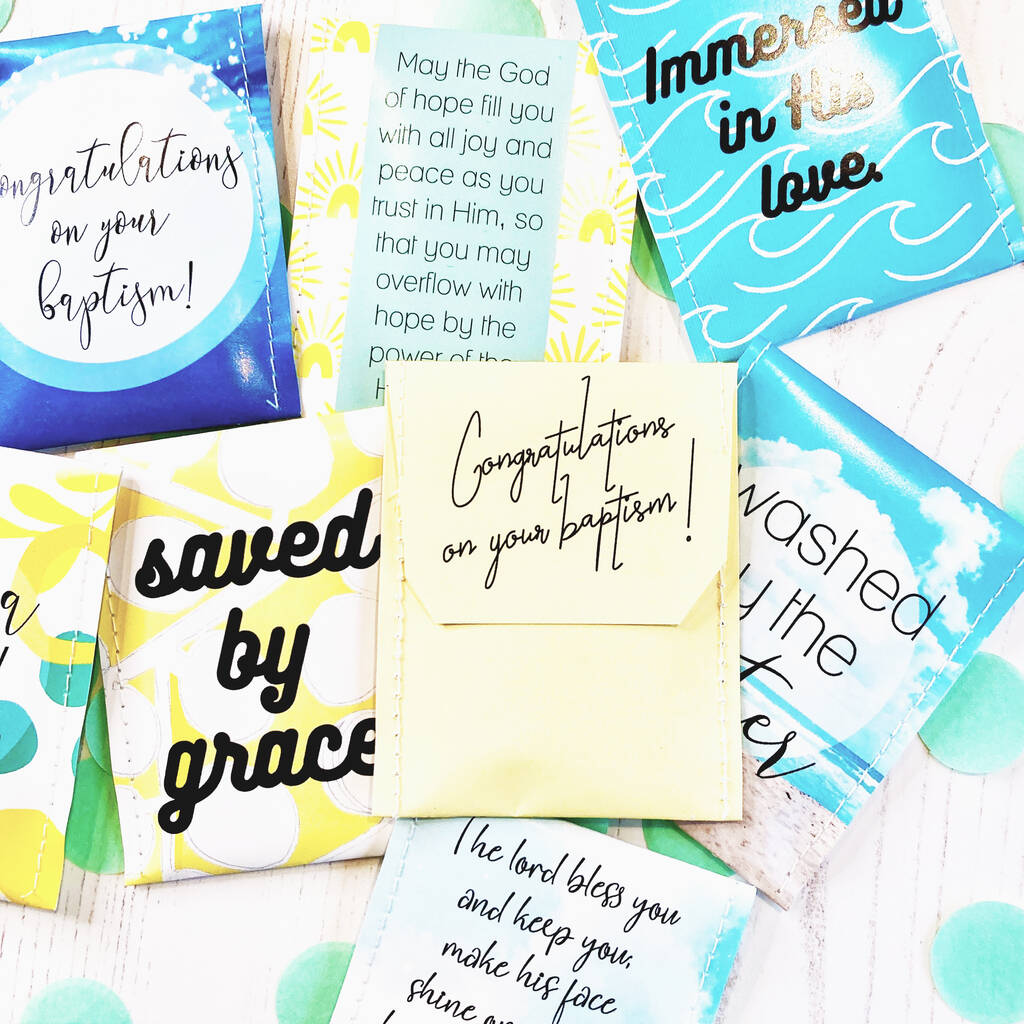 Congratulations
on your
baptism!
May the God
of hope fill you
with all joy and
peace as you
trust in Him, so
that you may
overflow with
hope by the
power of the
Immersed
in His
love.
saved
by
grace
Congratulations
on your baptism!
washed
by the
The lord bless you
and keep you,
make his face
shine